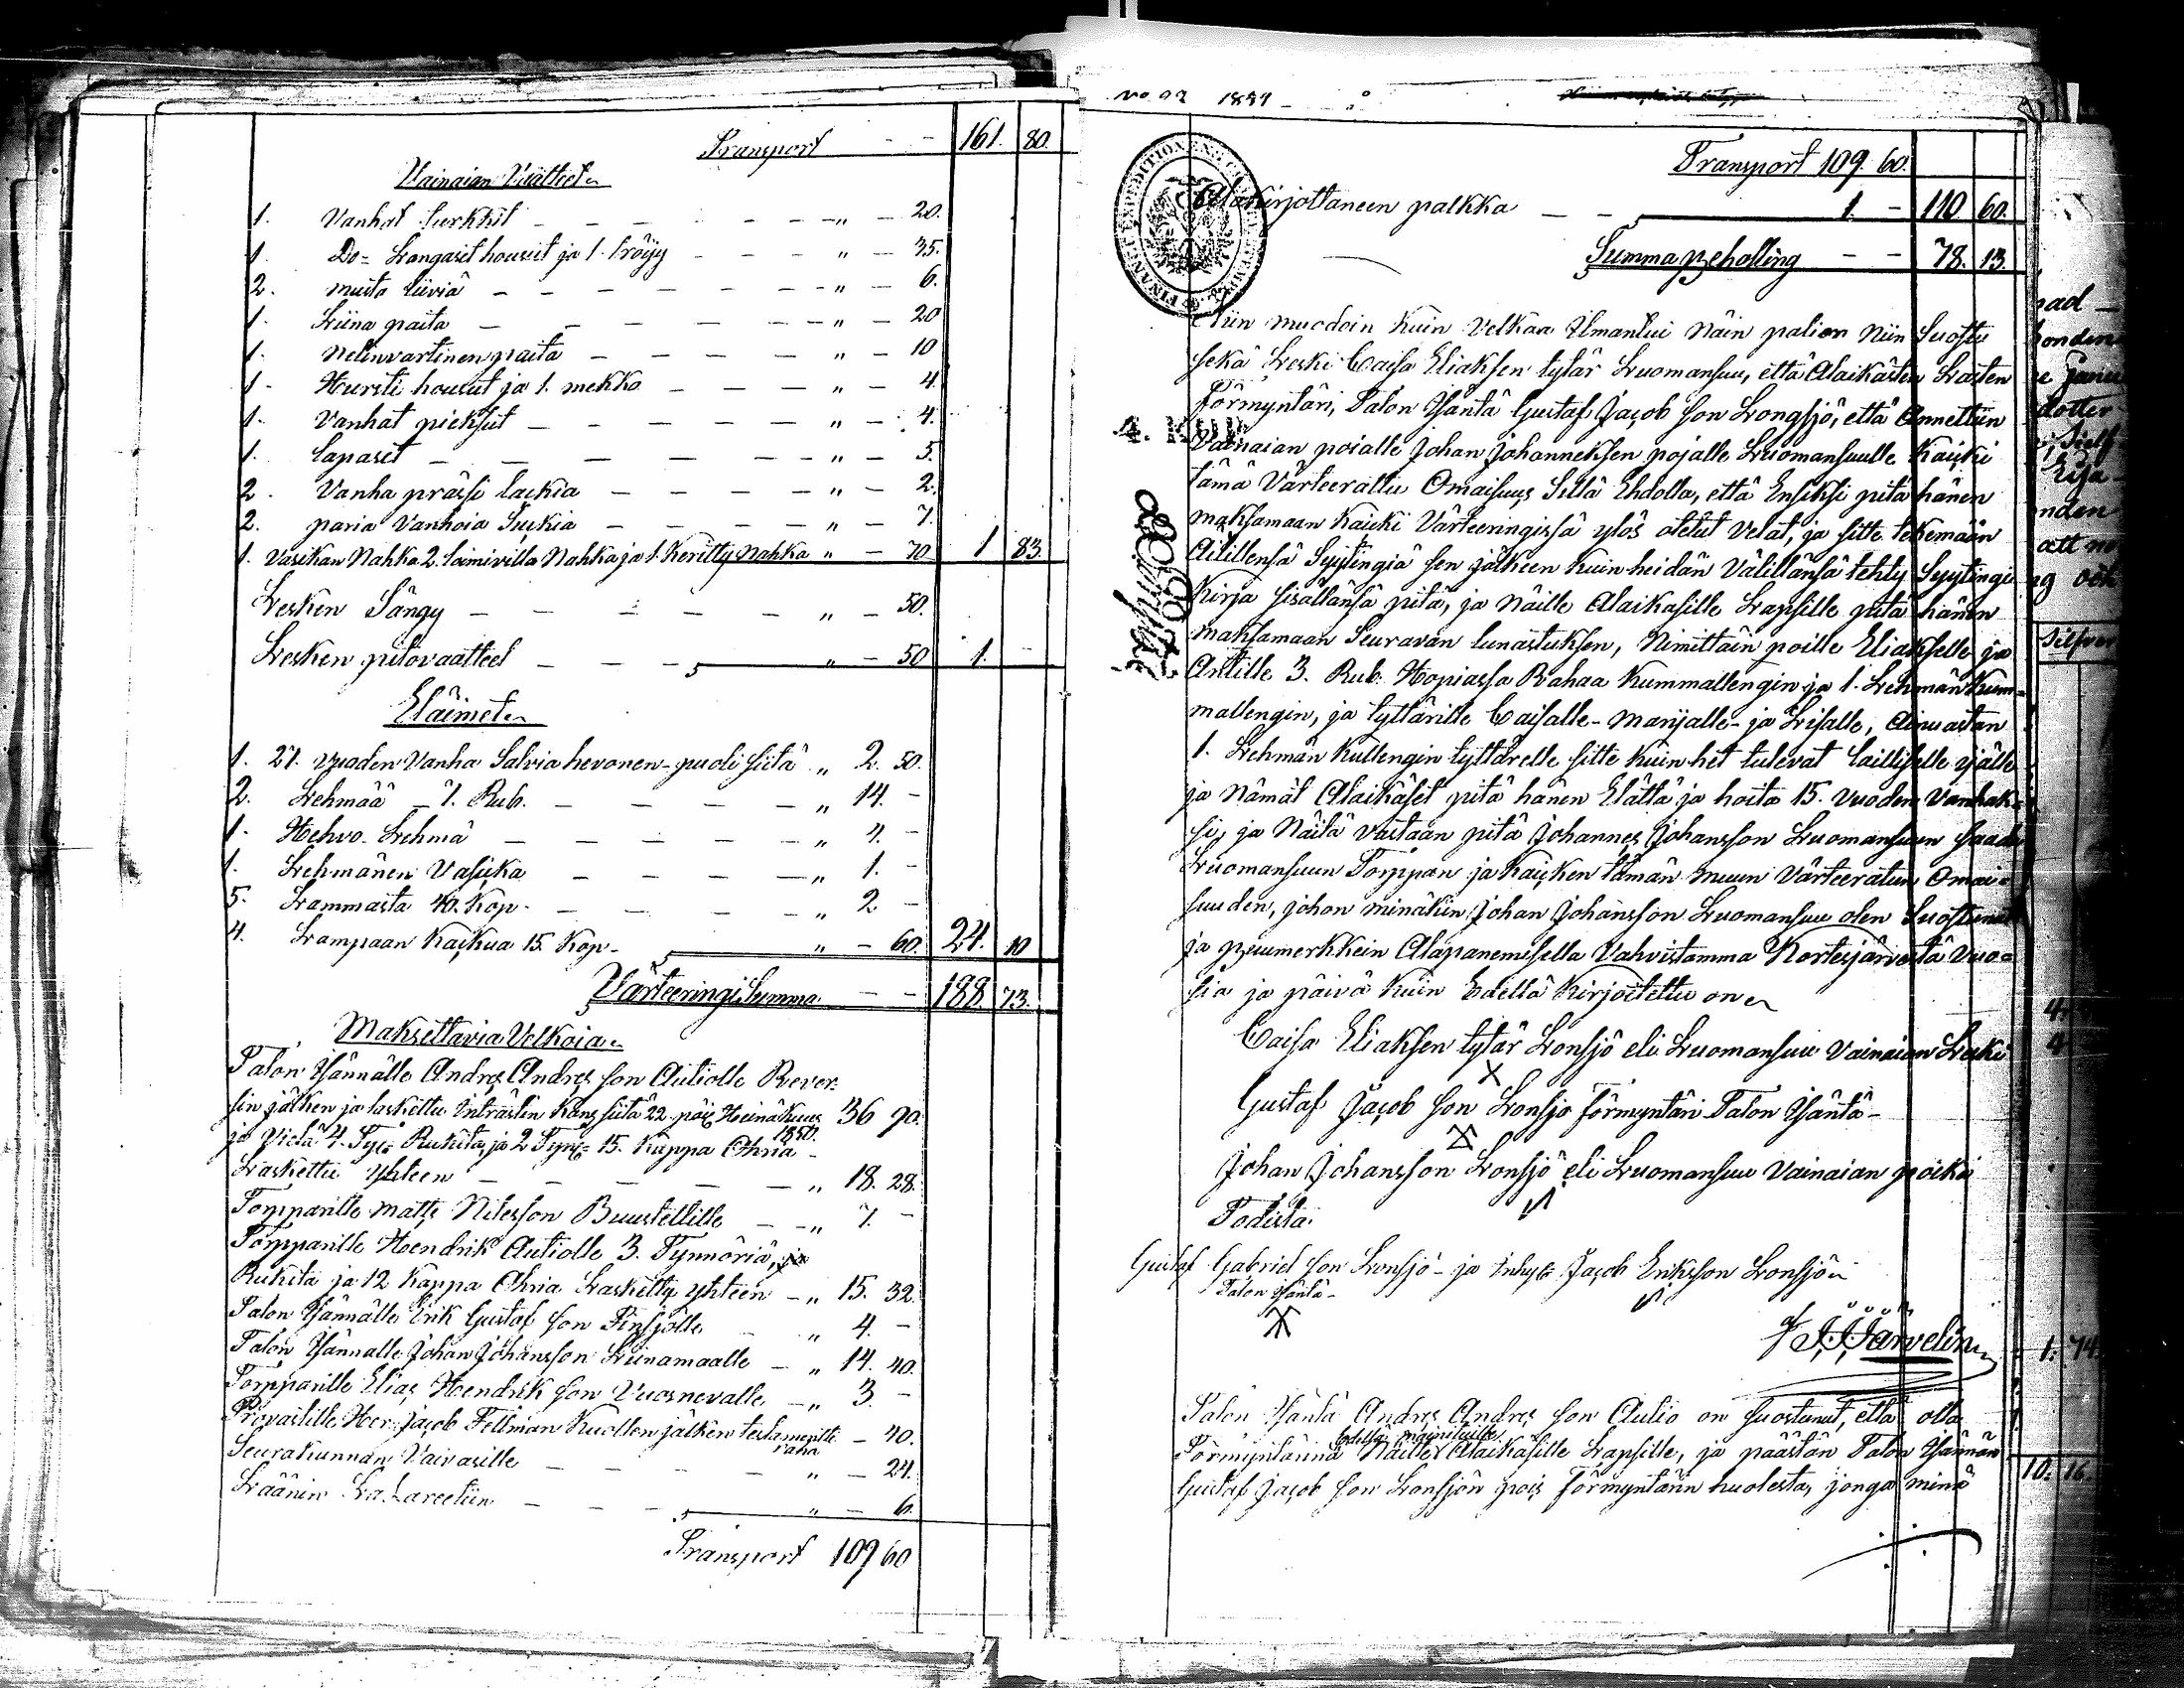 Transport - - 161. 80.
Vainaian Vuätteet
1. Vanhat turkkit - - - - " - 20.
1. Do= Langaset housut ja 1. tröyy - - - " - 35.
2. muita liiviä - - - - " - 6.
1. Liina paita - - - - " - 20
1. nelinvartinen paita - - - - " - 10
1. Hursti housut ja 1. mekko - - - " - 4.
1. Vanhat pieksut - - - - " - 4.
1. lapaset - - - - " - 5.
2. Vanha präissi lackia - - - - " - 2.
2. paria Vanhoia Suckia - - - - " - 7.
1. Vasikan Nahka 2. loimivilla Nahka ja 1. Keritty Nahka " - 70 1 83.
Lesken Sängy - - - - " - 50.
Lesken pitovaatteet - - - " - 50 1. -
Eläimet
1. 21. vuoden Vanha Salvia hevonen - puoli siitä " 2. 50.
2. Lehmää - 7. Rub. - - - - " 14. -
1. Hehvo-Lehmä - - - - " 4. -
1. Lehmänen Vasicka - - - - " 1. -
5. Lammasta 40. Kop. - - - - " 2 -
4. Lampaan Kackua 15. Kop. " - 60. 24. 10
Värteeringi Summa - - 188. 73.
Maksettavia Velkoia
Talon Isännälle Andres Andres son Autiolle Rever-
sin jälken ja laskettu inträstin kans siitä 22 päiv. Heinäkuus 36 90.
1850.
ja Vielä 4. Tyr Rukita, ja 2 Tyn= 15. Kappa Ohria -
Laskettu Yhteen - - - - " 18. 28.
Torpparille Matts Nilsson Buustellille - - " 7. -
Torpparille Hendrik Autiolle 3. Tynnöriä,
Rukita ja 12 Kappa Ohria Laskettu yhteen - " 15. 32.
Talon Isännälle Erik Gustaf son Finsjölle " 4. -
Talon Isännalle Johan Johansson Liinamaalle - " 14. 40.
Torpparille Elias Hendrik son Vuosnevalle - " 3. -
Provastille Her. Jacob Fellman Kuollen jälken testamentti - 40.
raha
Seurakunnan Vaivasille - - - - " - 24.
Läänin La Laretiin - - - " - 6.
Transport 109 60
No 92 1851 -
Transport 109. 60.
Alakirjottaneen palkka - - 1. - 110 60.
Summa beholling - - 78. 13.
Niin muodoin kuin Velkaa ilmantui näin palion niin Suostu
sekä Leski Caisa Eliaksen tytär Luomansuu, että Alaikästen Lasten
Förmyntäri, Talon Isäntä Gustaf Jacob son Longsjö, että Annettiin
Vainaian pojalle Johan Johanneksen pojalle Luomansuulle Kaicki
tämä Värteerattu Omaisuus Sillä Ehdolla, että Ensiksi pitä hänen
maksamaan Kaicki Värteeringissä ylös otetut Velat, ja sitte tekemään
Äitillensä Syytingiä sen jälkeen kuin heidän Välillänsä tehty Syytingi
Kirja sisällänsä pitä, ja näille Alaikäsille Lapsille pitä hänen
maksamaan Seuravan lunastuksen, Nimittäin poille Eliakselle ja
Antille 3. Rub. Hopiassa Rahaa Kummallengin ja 1. Lehmän Kum-
mallengin, ja tyttärille Caisalle - Marijalle - ja Lisalle, Ainuastan
1. Lehmän Kullengin tyttärelle sitte kuin het tulevat lailliselle ijälle
ja Nämät Alaikäset pitä hänen Elättä ja hoita 15. vuoden Vanhak-
si, ja Näitä vastaan pitä Johannes Johansson Luomansuun saada
Luomansuun Torppan ja Kaicken tämän muun Värteeratun Omai-
suuden, johon minäkiin Johan Johansson Luomansuu olen Suostunut
ja puumerkkein Alapanemisella Vahvistamma Kortesjärvestä Vuo-
sia ja päivä kuin Edellä Kirjoitettu on
Caisa Eliaksen tytär Lonsjö eli Luomansuu Vainaian Leski
X
Gustaf Jacob son Lonsjö förmyntäri Talon Isäntä -
Johan Johansson Lonsjö eli Luomansuu Vainaian poika
Todista
Gustaf Gabriel son Lonsjö - ja Inhys Jacob Eriksson Lonsjö
Talon Isäntä -
J. J. Järvelin
Talon Isäntä Andres Andres son Autio on suostunut, että olla
edellä mainituille
Förmyntärinä Näille Alaikäsille Lapsille, ja päästän Talon Isännän
Gustaf Jacob son Lonsjön pois förmyntärin huolesta, jonga minä